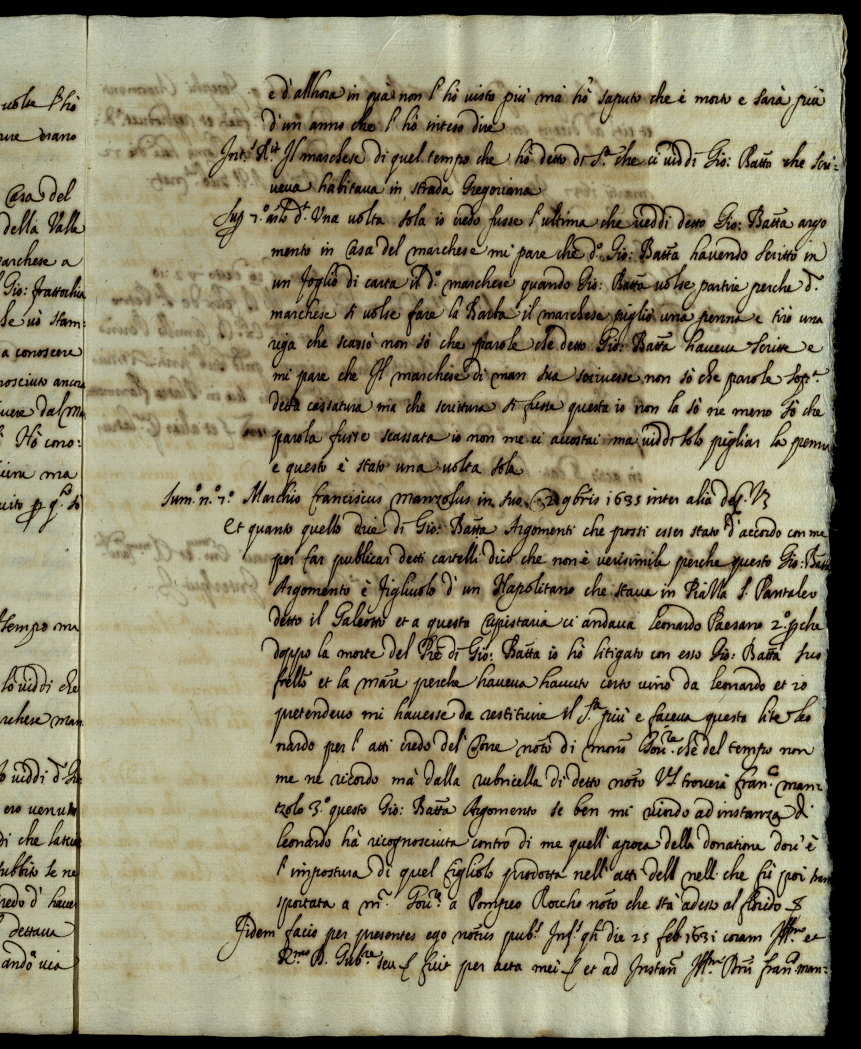 volte l'hò
Casa del
della Valle
marchese a
Gio: frattochia
a conoscere
Hò cono:
tempo ma
lo viddi che
marchese man
ero venuto
di che
subbito le ne
credo d'haver
dettava
andò via
e d'allhora in quà non l'hò visto più mà hò saputo che è morto e sarà più
d'un anno che l'hò inteso dire
Int.s R.it Il marchese di quel tempo che hò detto di s.a che ci viddi Gio: Batta che scri-
veva habitava in strada Gregoriana
Sup. 7.o Una volta sola io credo fusse l'ultima che veddi detto Gio: Batta argo
mento in Casa del marchese mi pare che d.o Gio: Batta havendo scritto in
un foglio di carta il d.o marchese quando Gio: Batta volse partire perche d.
marchese si volse fare la Barba il marchese pigliò una penna e tirò una
riga che scassò non sò che parole che detto Gio: Batta haveva scritte e
mi pare che Il marchese di man sua scrivesse non sò che parole sop.a
detta cassatura ma che scrittura si fusse questa io non la sò ne meno sò che
parola fusse scassata io non me ci accostai ma viddi solo pigliar la penna
e questo è stato una volta sola
Sum.o n.o 7.o Marchio franciscus manzolus in suo 1635 inter alia
Et quanto quello dice di Gio: Batta Argomenti che posti esser stato d'accordo con me
per far publicar detti cartelli dico che non è verisimile perche questo Gio: Batta
Argomento è figliuolo d'un Napolitano che stava in Piazza S. Pantaleo
detto il Galeotto et a questa ci andava leonardo Paesano 2.o perche
doppo la morte del Pre di Gio: Batta io hò litigato con esso Gio: Batta suo
frello et la mare perche haveva havuto certo vino da leonardo et io
pretendevo mi havesse da restituire il s.a più e faceva questa lite leo
nardo per l'atti credo del Torre noto di mons.r Gov.re che del tempo non
me ne ricordo mà dalla rubricella di detto noto V.S. troverà fran.co man-
zolo 3.o questo Gio: Batta Argomento se ben mi ricordo ad instanza di
leonardo hà ricognosciuta contro di me quell'apoca della donatione dov'è
l'impostura di quel figliolo prodotta nell'atti dell nell che fù poi tran
sportata a m.r Gov.re a Pompeo Roccho noto che stà adesso al florido
fidem facio per presentes ego notrius pub.s Inf.s qh die 25 feb 1631 coram Ill.mo et
R.mo D. Gub.re seu fuit per acta mei et ad Instan Ill.mi Dni fran.ci man-